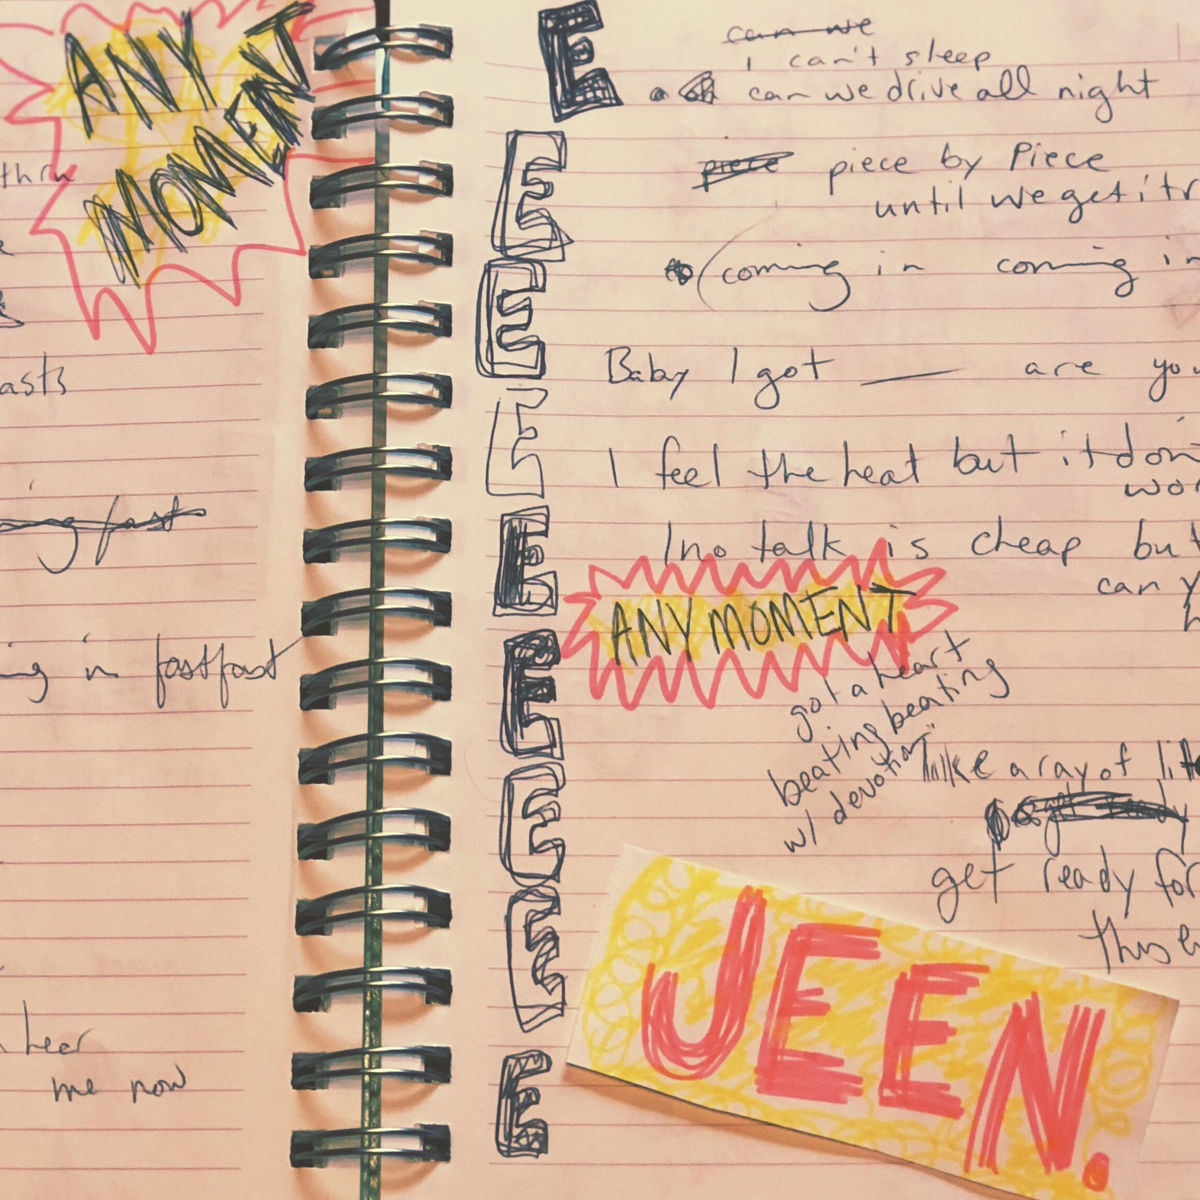 ANY
MOMENT
thru
asts
ing fast
ing in fastfast
hear
me now
E
E
E
E
E
E
E
E
E
can we
I can't sleep
can we drive all night
piece piece by Piece
until we get it r
(coming in coming in
Baby I got — are you
I feel the heat but it don'
wor
no talk is cheap but
can y
ANY MOMENT
got a heart
beating beating
w/ devotion
like a ray of
get ready
get ready for
this
JEEN.